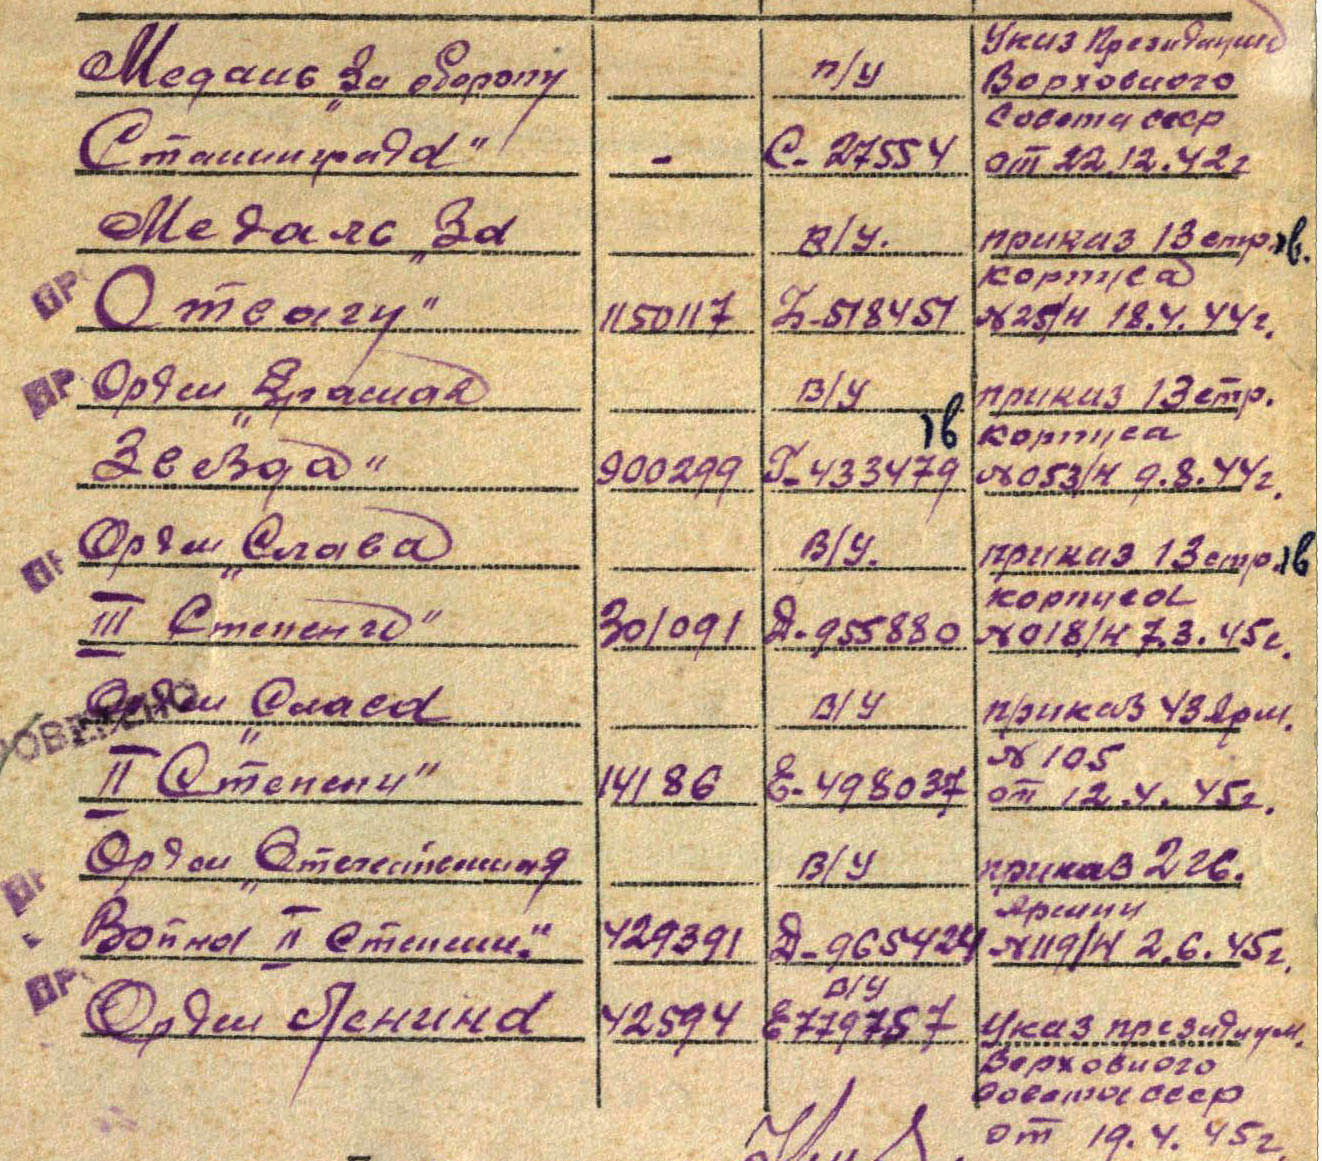 Указ Президиума
Медаль „За оборону п/у Верховного
Совета СССР
Сталинграда" - С-27554 от 22.12.42г
Медаль „За в/у. приказ 13 стр. в.
корпуса
Отвагу" 1150117 518451 №25/н 18.4.44г.
Орден „Красная в/у приказ 13 стр.
в корпуса
Звезда" 900299 Г-433479 №053/н 9.8.44г.
Орден „Слава в/у. приказ 13 стр. в
корпуса
III Степени" 301091 Д-955880 №018/н 7.3.45г.
Орден „Слава в/у приказ 43 Арм.
№105
II Степени" 14186 Е-498037 от 12.4.45г.
Орден „Отечественная в/у приказ 2 гв.
Армии
Война II Степени". 429391 Д-965424 №119/н 2.6.45г.
в/у
Орден Ленина 42594 Е779757 Указ президиум.
Верховного
Совета СССР
от 19.4.45г.